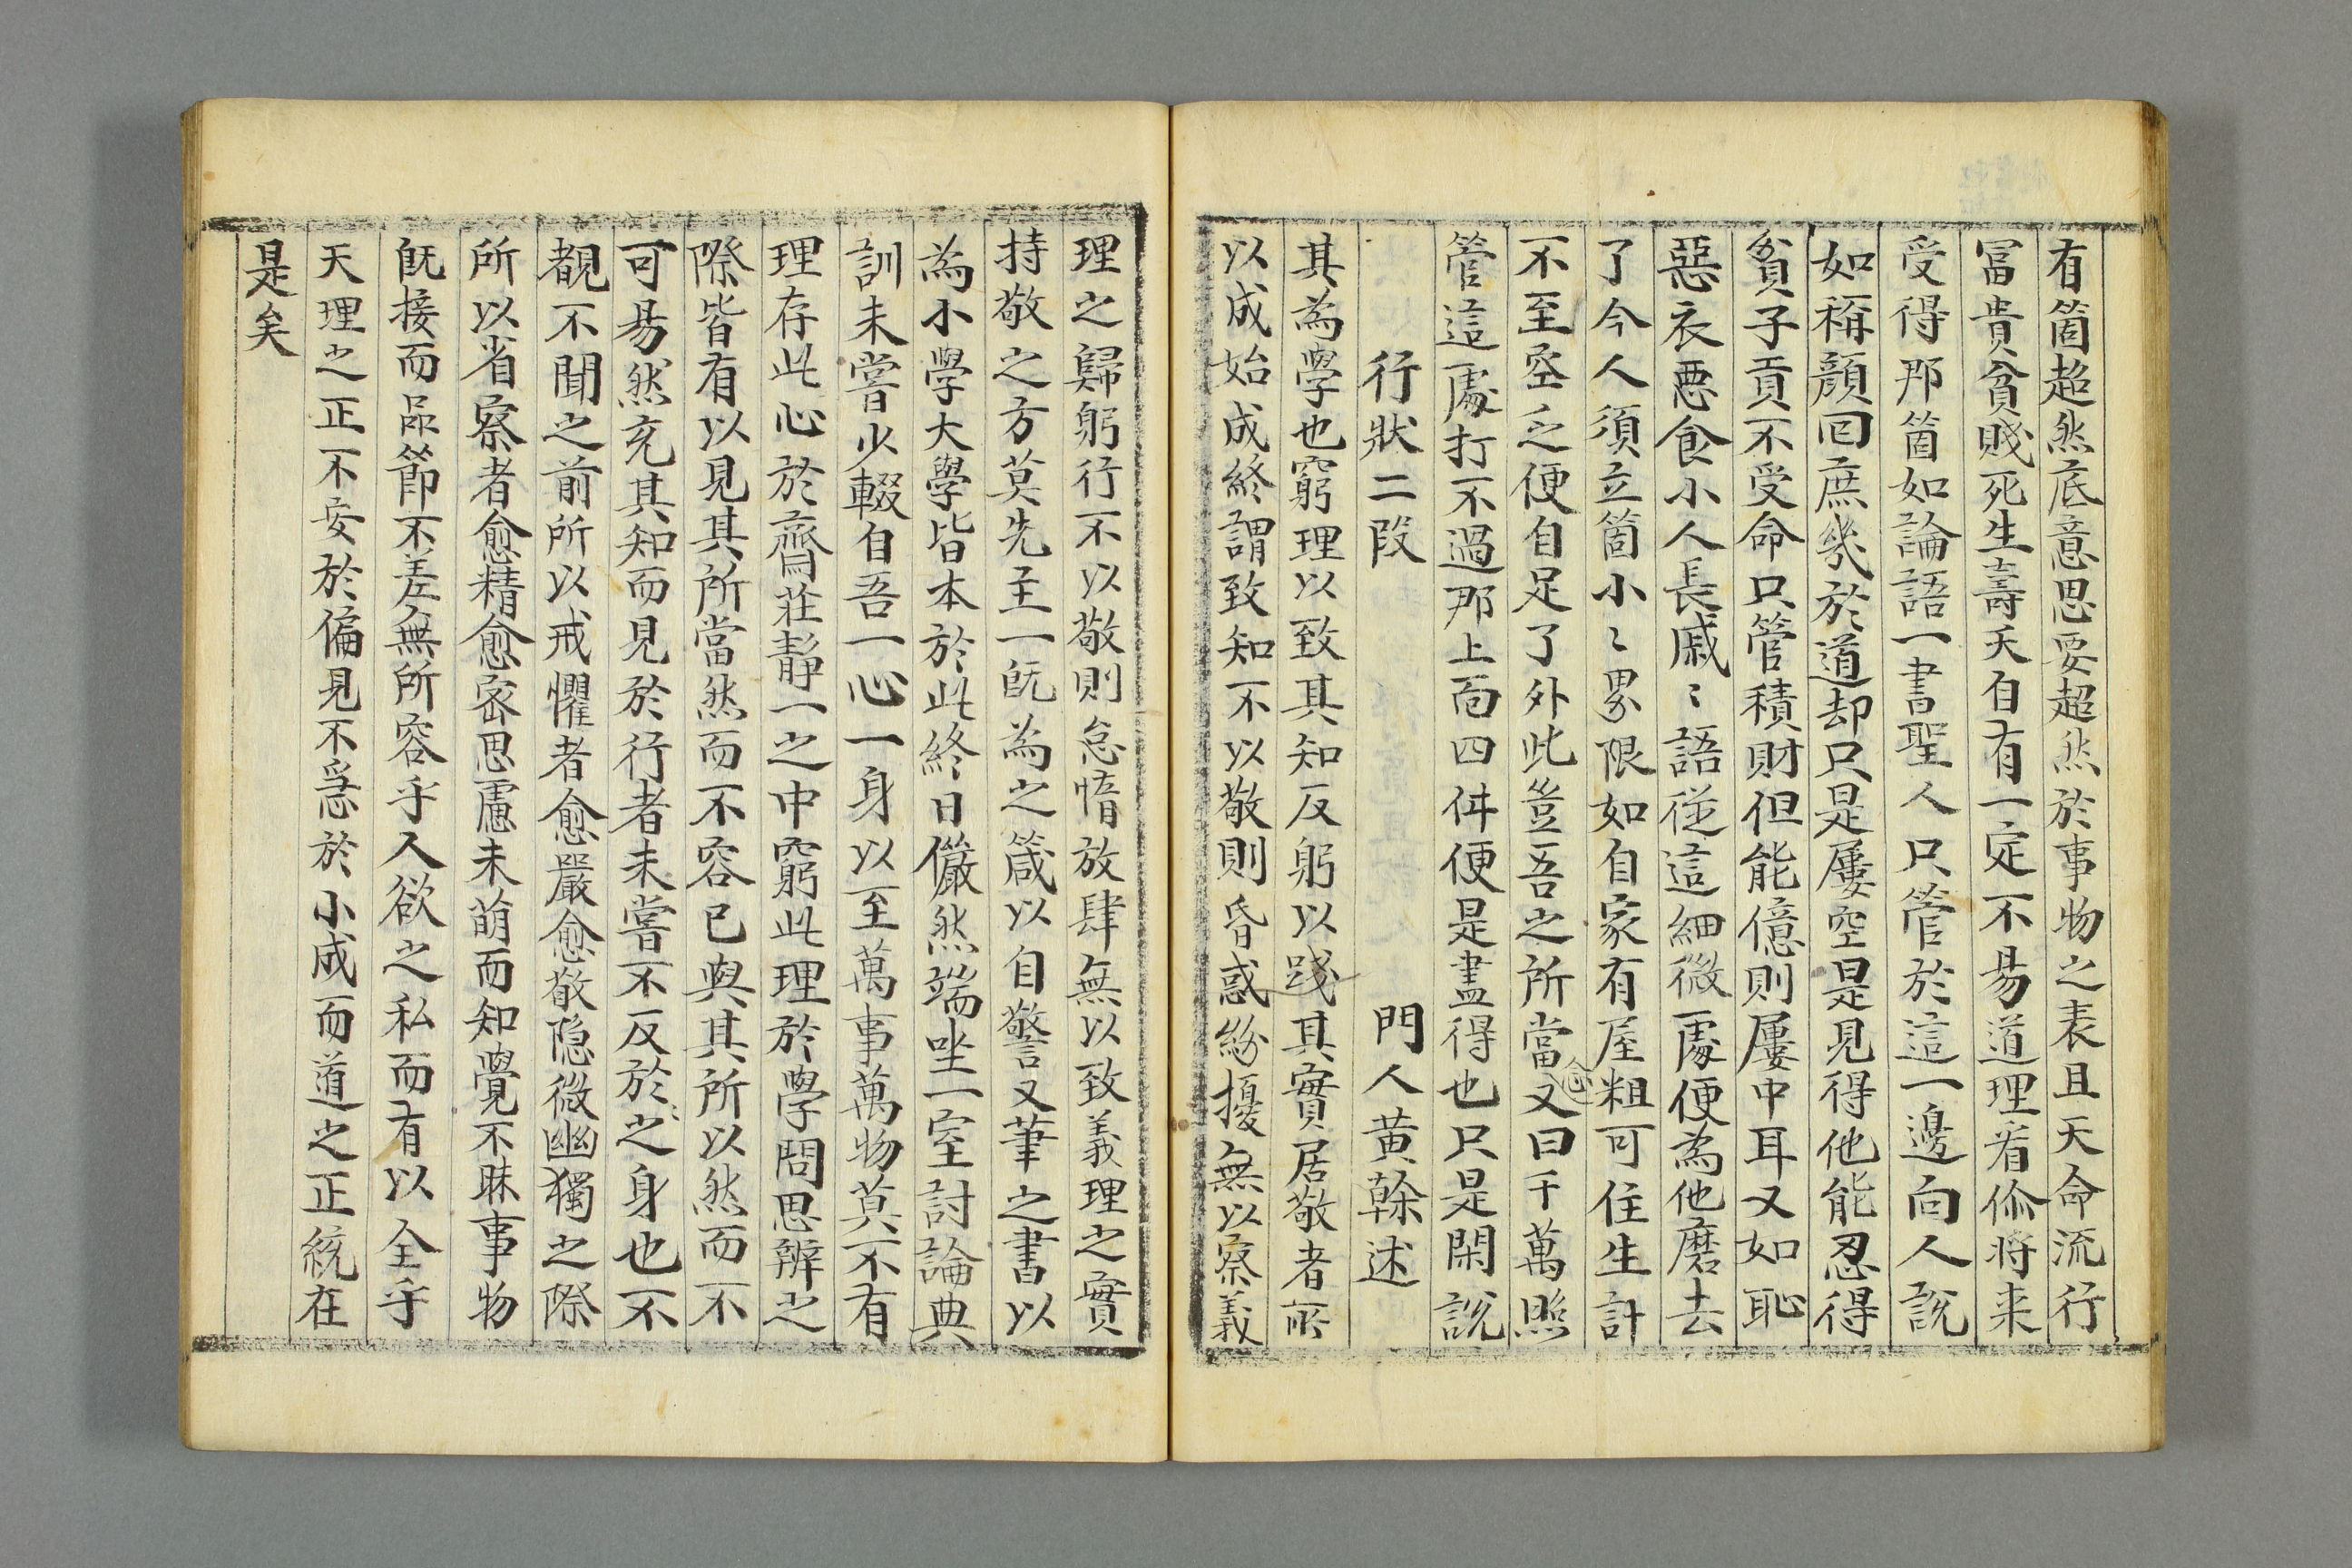 有箇超然底意思要超然於事物之表且天命流行
冨貴貧賤死生壽夭自有一定不易道理看係將来
受得那箇如論語一書聖人只管於這一邊向人說
如稱顔回庶幾於道却只是屢空是見得他能忍得
貧子貢不受命只管積財但能億則屢中耳又如恥
惡衣悪食小人長戚〻語従這細微䖏便為他磨去
了今人須立箇小〻界限如自家有屋粗可住生計
不至空乏便自足了外此豈吾之所當念又曰千萬照
管這䖏打不過那上面四件便是盡得也只是閑說
行狀二段 門人黄榦述
其為學也窮理以致其知反躬以踐其實居敬者所
以成始成終謂致知不以敬則昏惑紛擾無以察義
理之歸躬行不以敬則怠惰放肆無以致義理之實
持敬之方莫先主一旣為之箴以自警又筆之書以
為小學大學皆本於此終日儼然端坐一室討論典
訓未嘗少輟自吾一心一身以至萬事萬物莫不有
理存此心於齊莊靜一之中窮此理於學問思辨之
際皆有以見其所當然而不容已與其所以然而不
可易然充其知而見於行者未嘗不反於之身也不
覩不聞之前所以戒懼者愈嚴愈敬隐微幽獨之際
所以省察者愈精愈密思慮未萌而知覺不昧事物
旣接而品節不差無所容乎人欲之私而有以全乎
天理之正不安於偏見不急於小成而道之正統在
是矣